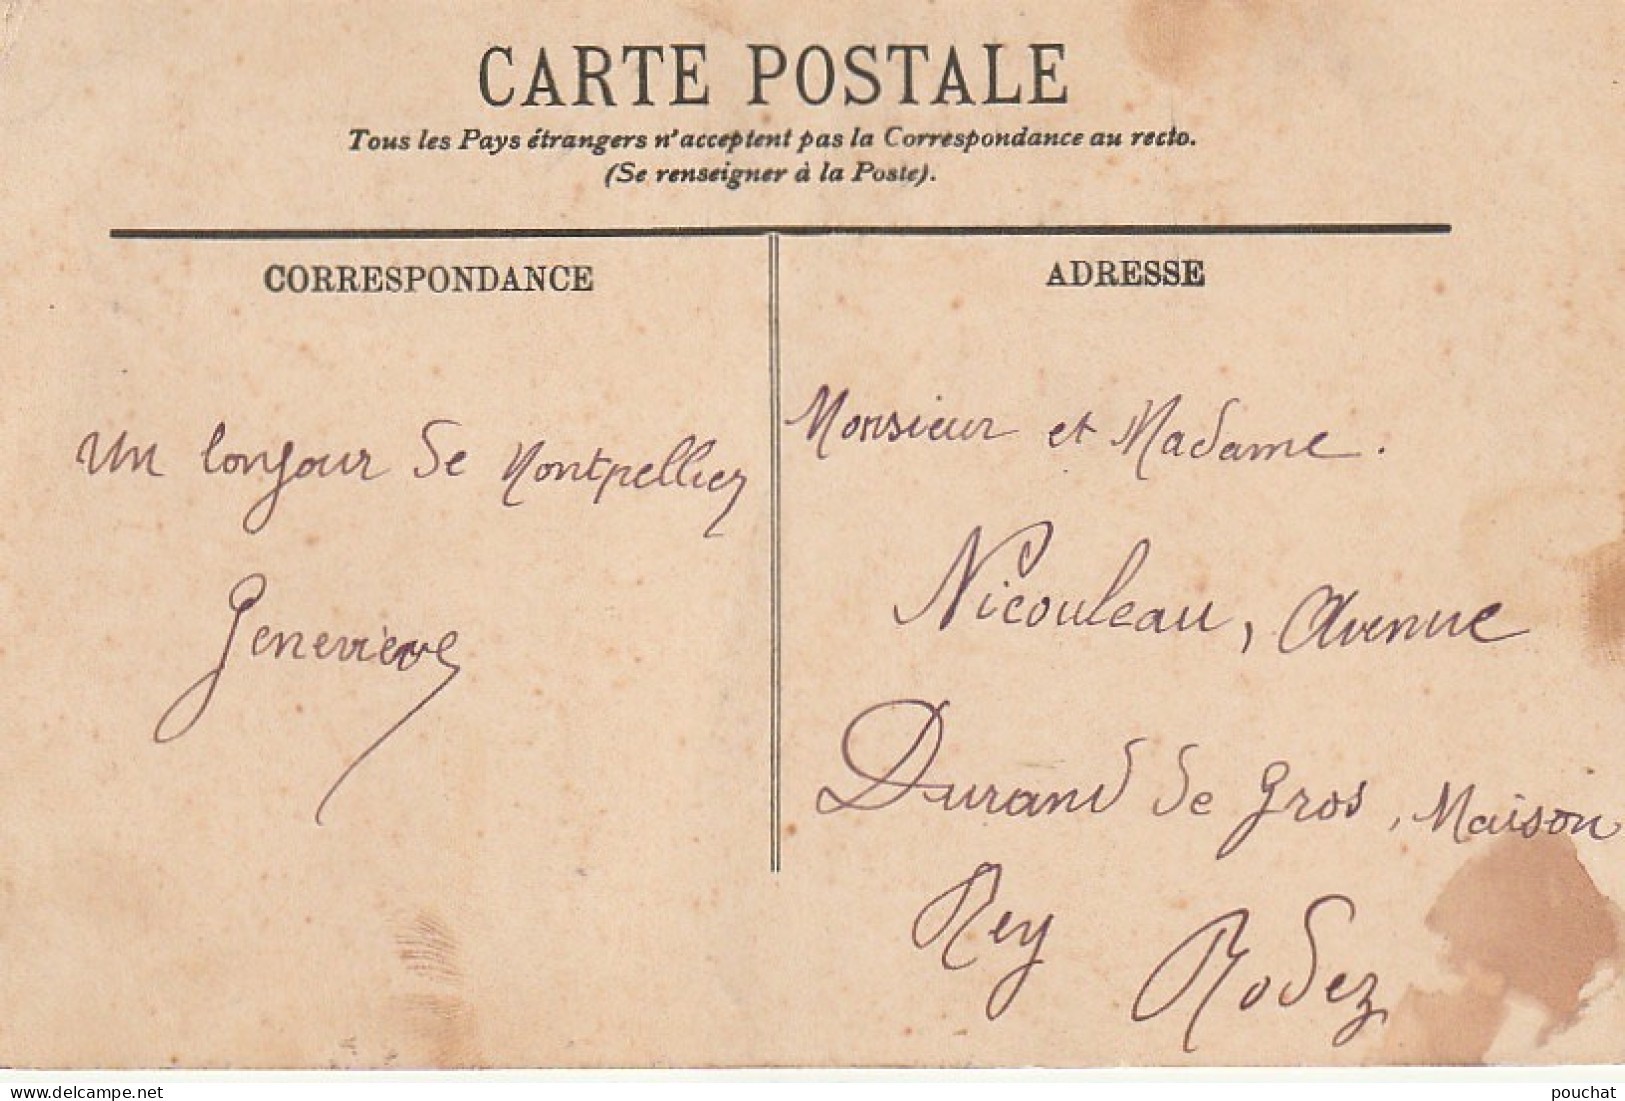 CARTE POSTALE
Tous les Pays étrangers n'acceptent pas la Correspondance au recto.
(Se renseigner à la Poste).
CORRESPONDANCE
Un bonjour de Montpellier
Geneviève
ADRESSE
Monsieur et Madame.
Nicouleau, Avenue
Durand de Gros, Maison
Rey Rodez
www.delcampe.net
pouchat